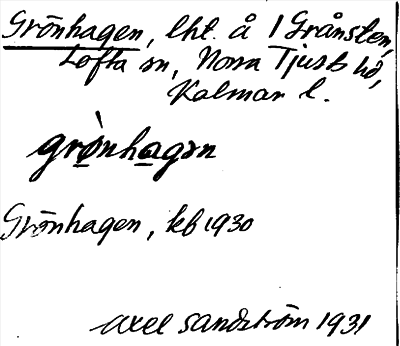 Grönhagen, lht. å 1 Grånsten,
Lofta sn, Norra Tjust hd,
Kalmar l.
grò̱nha̱gən
Grönhagen, kb 1930
Axel Sandström 1931